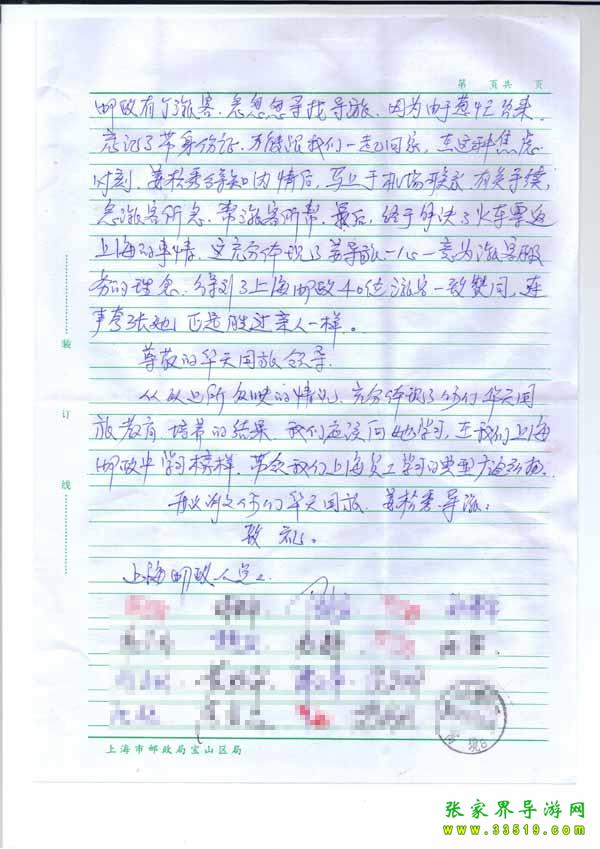 第 页共 页
邮政有了游客，急急忙寻找导游，因为由于葱忙出来，
忘记了带身份证，方能跟我们一起回家，在这种焦虑
时刻，姜松秀得知内情后，马上于机场联永有关手续，
急游客所急，帮游客所帮，最后，终于解决了火车票返
上海的事情，这充分体现了姜导游一心一意为游客服
务的理念，得到了上海邮政40位游客一致赞同，连
声夸张她，正是胜过亲人一样。
尊敬的华天国旅领导
从以上所反映的情况，充分体现了你们华天国
旅教育培养的结果，我们应该向她学习，在我们上海
邮政中学习榜样，带令我们上海员工学习的典型
再次谢之你们华天国旅，姜松秀导游：
致礼。
上海邮政人员：
装
订
线
上海市邮政局宝山区局
张家界导游网
www.33519.com